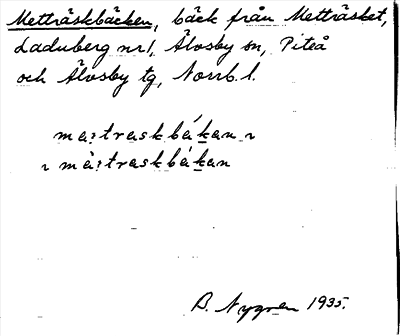 Metträskbäcken, bäck från Metträsket,
Laduberg nr 1, Älvsby sn, Piteå
och Älvsby tg, Norrb. l.
ma:traskbákan
mà:traskbákan
B. Nygren 1935.